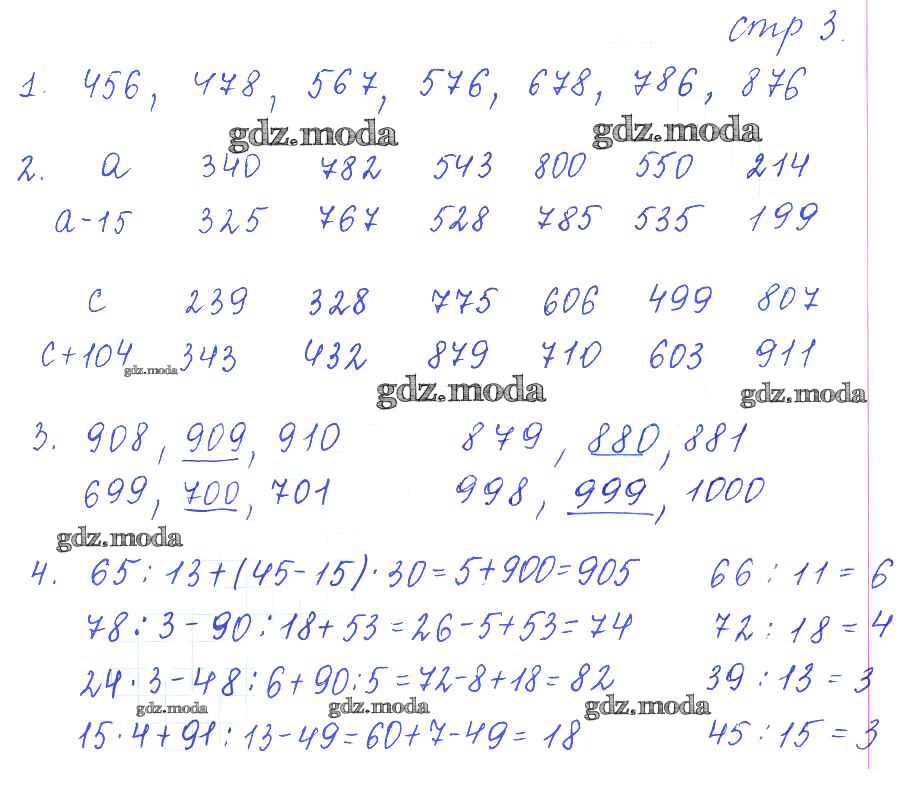 стр 3.
1. 456, 478, 567, 576, 678, 786, 876
gdz.moda gdz.moda
2. a 340 782 543 800 550 214
a-15 325 767 528 785 535 199
c 239 328 775 606 499 807
c+104 343 432 879 710 603 911
gdz.moda gdz.moda gdz.moda
3. 908, 909, 910 879, 880, 881
699, 700, 701 998, 999, 1000
gdz.moda
4. 65:13+(45-15)·30=5+900=905 66:11=6
78:3-90:18+53=26-5+53=74 72:18=4
24·3-48:6+90:5=72-8+18=82 39:13=3
gdz.moda gdz.moda gdz.moda
15·4+91:13-49=60+7-49=18 45:15=3